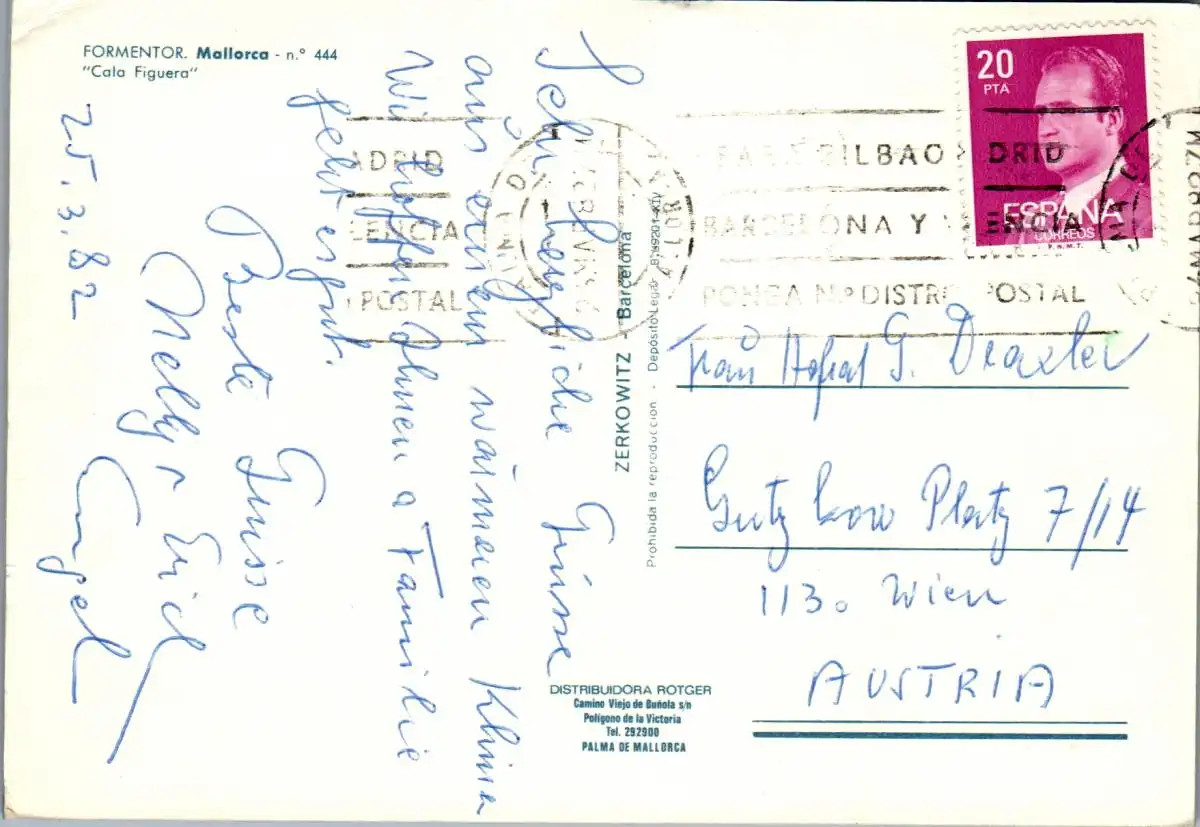 FORMENTOR. Mallorca - n.º 444
"Cala Figuera"
25.3.82
Sehr herzliche Grüsse
aus einem warmen Klima
Wir hoffen Ihnen u Familie
geht es gut.
Beste Grüsse
Nelly u Erich
Engel
ZERKOWITZ - Barcelona
Prohibida la reproducción - Depósito Legal B.
DISTRIBUIDORA ROTGER
Camino Viejo de Buñola s/n
Polígono de la Victoria
Tel. 292900
PALMA DE MALLORCA
20
PTA
ESPAÑA
CORREOS
F.N.M.T.
PARA BILBAO MADRID
BARCELONA Y VALENCIA
PONGA Nº DISTRITO POSTAL
ADRID
LENCIA
POSTAL
Frau Hofrat G. Draxler
Gutzkow Platz 7/14
1130 Wien
AUSTRIA